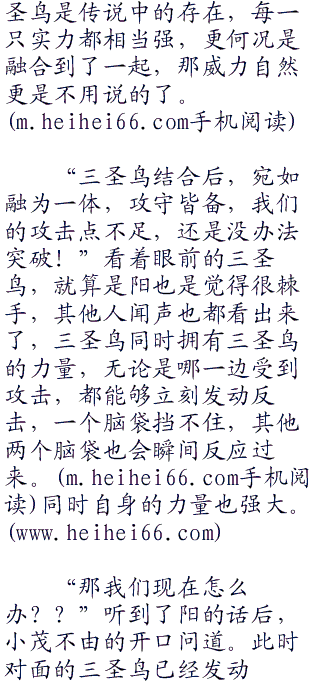 圣鸟是传说中的存在，每一
只实力都相当强，更何况是
融合到了一起，那威力自然
更是不用说的了。
(m.heihei66.com手机阅读)
“三圣鸟结合后，宛如
融为一体，攻守皆备，我们
的攻击点不足，还是没办法
突破！”看着眼前的三圣
鸟，就算是阳也是觉得很棘
手，其他人闻声也都看出来
了，三圣鸟同时拥有三圣鸟
的力量，无论是哪一边受到
攻击，都能够立刻发动反
击，一个脑袋挡不住，其他
两个脑袋也会瞬间反应过
来。(m.heihei66.com手机阅
读)同时自身的力量也强大。
(www.heihei66.com)
“那我们现在怎么
办？？”听到了阳的话后，
小茂不由的开口问道。此时
对面的三圣鸟已经发动